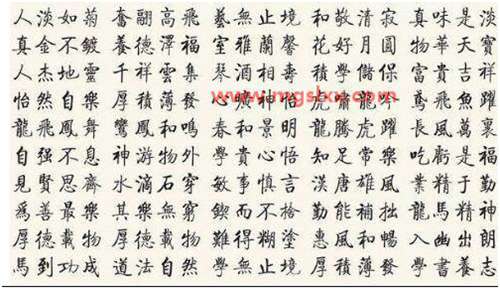 人淡如菊 奮翮高飛 藝無止境 和敬清寂 真味是淡
真金不鍍 養德澤福 室雅蘭馨 花好月圓 物華天寶
人杰地靈 千祥雲集 琴酒相壽 積學儲保 富貴吉祥
怡然自樂 厚積薄發 心 神怡 虎嘯龍吟 鳶飛魚躍
龍飛鳳舞 鸞鳳和鳴 春和景明 龍騰虎躍 長風萬裏
自强不息 神游物外 學貴心悟 知足常樂 吃虧是福
見賢思齊 水滴石穿 敏事慎言 漢唐雄風 業精于勤
爲善最樂 其樂無窮 鍥而不捨 勤能補拙 龍馬精神
厚德載物 難得糊塗 惠風和暢 入幽出朗
馬到功成 道法自然 學無止境 厚積薄發 學書養志